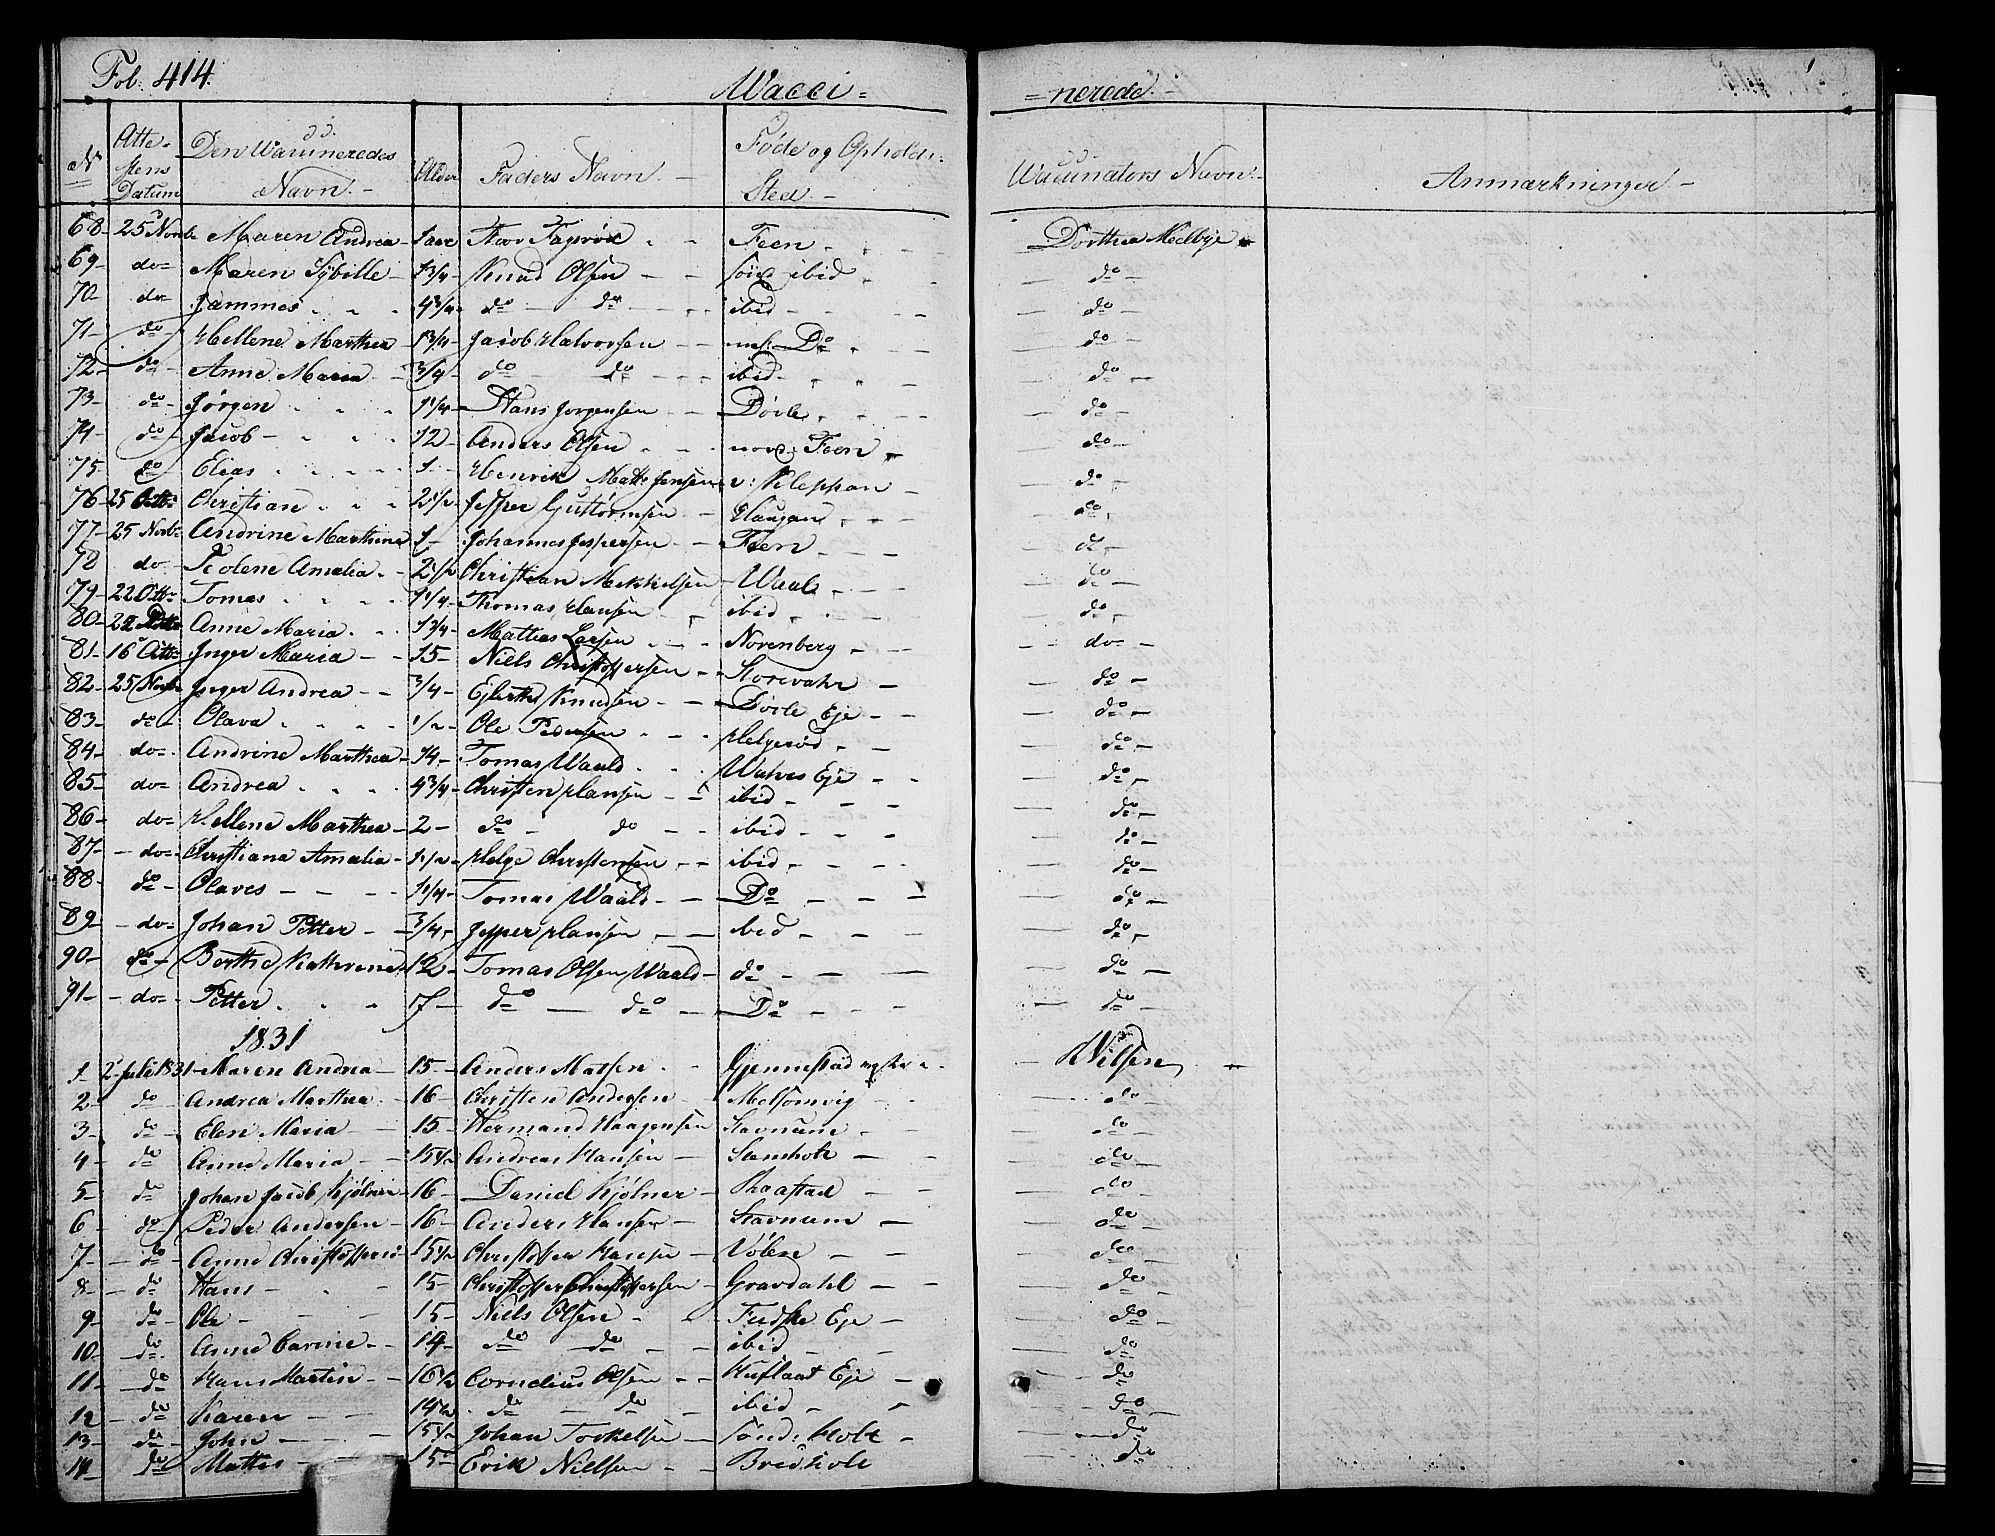 Fol. 414.
Wacci= =nerede.
No Atte=stens Datum Den Waccineredes Navn. Alder Faders Navn. Føde og Opholds=Sted. Waccinators Navn. Anmærkninger
68 25 Novbr Maren Andrea 1 aar Feen Dorthea Medbye
69 do Maren Sybille 1 3/4 Knud Olsen ibid do
70 do Jammes 4 3/4 do do ibid do
71 do Hellene Marthea 1 3/4 Jacob Halvorsen Do do
72 do Anne Maria 3/4 do do ibid do
73 do Jørgen 1 1/4 Hans Jørgensen Dørle do
74 do Jacob 12 Anders Olsen nord: Feen do
75 do Elias 1 Henrik Kleppan do
76 25 Octbr Christian 2 1/2 Jesper Gustormsen Haugan do
77 25 Novbr Andrine Marthine 1 Johannes Jespersen Feen do
78 do Amalia 2 1/2 Christian Mekkelsen Waale do
79 22 Octbr Tomas 1 1/4 Thomas Hansen ibid do
80 22 Anne Maria 1 3/4 Mathias Larsen Norenberg do
81 16 Octbr Inger Maria 15 Niels Christoffersen do
82 25 Novbr Inger Andrea 3/4 Knudsen Dørle Eje do
83 do Olava 1/2 Ole Pedersen Helgerød do
84 do Andrine Marthea 14 Tomas Waald Eje do
85 do Andrea 4 3/4 Christen Hansen ibid do
86 do Hellene Marthea 2 do do ibid do
87 do Christiana Amalia 1 1/2 Helge Christensen ibid do
88 do Olaves 1 1/4 Tomas Waald Do do
89 do Johan Petter 3/4 Jesper Hansen ibid do
90 do Berthe Kathrine 12 Tomas Olsen Waald do do
91 do Petter 7 do do Do do
1831
1 2 Juli 1831 Maren Andrea 15 Anders Gjennestad Wilsen
2 do Andrea Marthea 16 Christen Andersen Melsomvig do
3 do Elen Maria 15 Hermand Haagensen Stavnum do
4 do Anne Maria 15 1/2 Andreas Hansen do
5 do Johan Jacob Kjølner 16 Daniel Kjølner Raastad do
6 do Peder Andersen 16 Anders Hansen Stavnum do
7 do Anne 15 1/2 Christoffer Hansen do
8 do Hans 15 Christoffer Christoffersen Gravdahl do
9 do Ole 15 Niels Olsen Eje do
10 do Anne Carine 14 do do ibid do
11 do Hans Martin 16 1/2 Cornelius Olsen Eje do
12 do Karen 14 1/2 do do ibid do
13 do John 15 1/2 Johan Torkelsen Holt do
14 do 15 Erik Nielsen Bredholt do